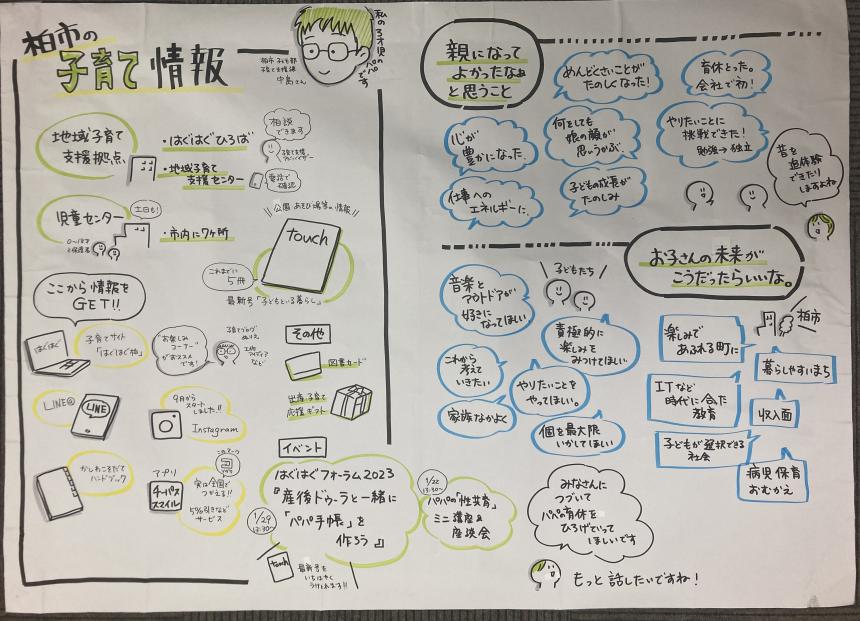 柏市の
子育て 情報
柏市 こども部
子育て支援課
中島さん
私の3才児の
パパです
地域子育て
支援拠点
・はぐはぐひろば
・地域子育て
支援センター
相談
できます
子育て支援
アドバイザー
電話で
確認
児童センター
土日も!
0〜18才
と保護者
・市内に7ヶ所
公園・あそび場等の情報
touch
これまでに
5冊
最新号「子どもといる暮らし」
ここから情報を
GET!!
はぐはぐ
子育てサイト
「はぐはぐ柏」
お楽しみ
コーナー
がおススメ
です!
子育てブログ
ぬりえ
工作
アイディア
など
その他
図書カード
出産・子育て
応援ギフト
LINE@
LINE
9月から
スタート
しました!!
Instagram
かしわこそだて
ハンドブック
アプリ
チーパス
スマイル
このマーク
実は全国で
つかえる!!
5%引きなど
サービス
イベント
はぐはぐフォーラム2023
『産後ドゥーラと一緒に
「パパ手帳」を
作ろう』
1/29
13:30〜
1/22
13:30〜
パパの「性共育」
ミニ講座&
座談会
touch
最新号を
いちはやく
うけとれます!!
親になって
よかったなぁ
と思うこと
めんどくさいことが
たのしくなった!
育休とった。
会社で初!
心が
豊かになった
何をしても
娘の顔が
思いうかぶ
やりたいことに
挑戦できた!
勉強→独立
昔を
追体験
できたり
しますよね
仕事への
エネルギーに
子どもの成長が
たのしみ
お子さんの未来が
こうだったらいいな。
音楽と
アウトドアが
好きに
なってほしい
子どもたち
積極的に
楽しみを
みつけてほしい
これから
考えて
いきたい
やりたいことを
やってほしい。
家族なかよく
個を最大限
いかしてほしい
柏市
楽しみで
あふれる町に
暮らしやすいまち
ITなど
時代に合った
教育
収入面
子どもが選択できる
社会
病児保育
おむかえ
みなさんに
つづいて
パパの育休を
ひろげていって
ほしいです
もっと話したいですね!